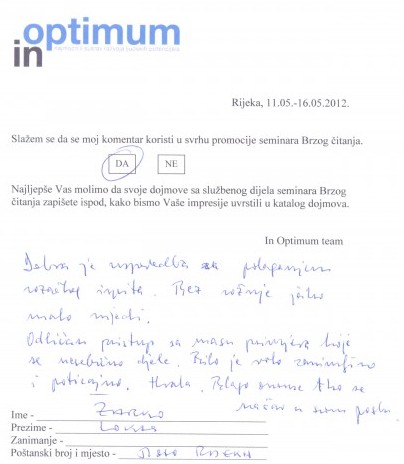 in optimum
Rijeka, 11.05.-16.05.2012.
Slažem se da se moj komentar koristi u svrhu promocije seminara Brzog čitanja.
DA NE
Najljepše Vas molimo da svoje dojmove sa službenog dijela seminara Brzog
čitanja zapišete ispod, kako bismo Vaše impresije uvrstili u katalog dojmova.
In Optimum team
Dobra je usporedba sa polaganjem
vozačkog ispita. Bez vožnje jako
malo vrijedi.
Odličan pristup sa masu primjera koje
se nesebično djele. Bilo je vrlo zanimljivo
i poticajno. Hvala. Blago onome tko se
našao u svom poslu.
Ime - Žarko
Prezime -
Zanimanje -
Poštanski broj i mjesto - Rijeka